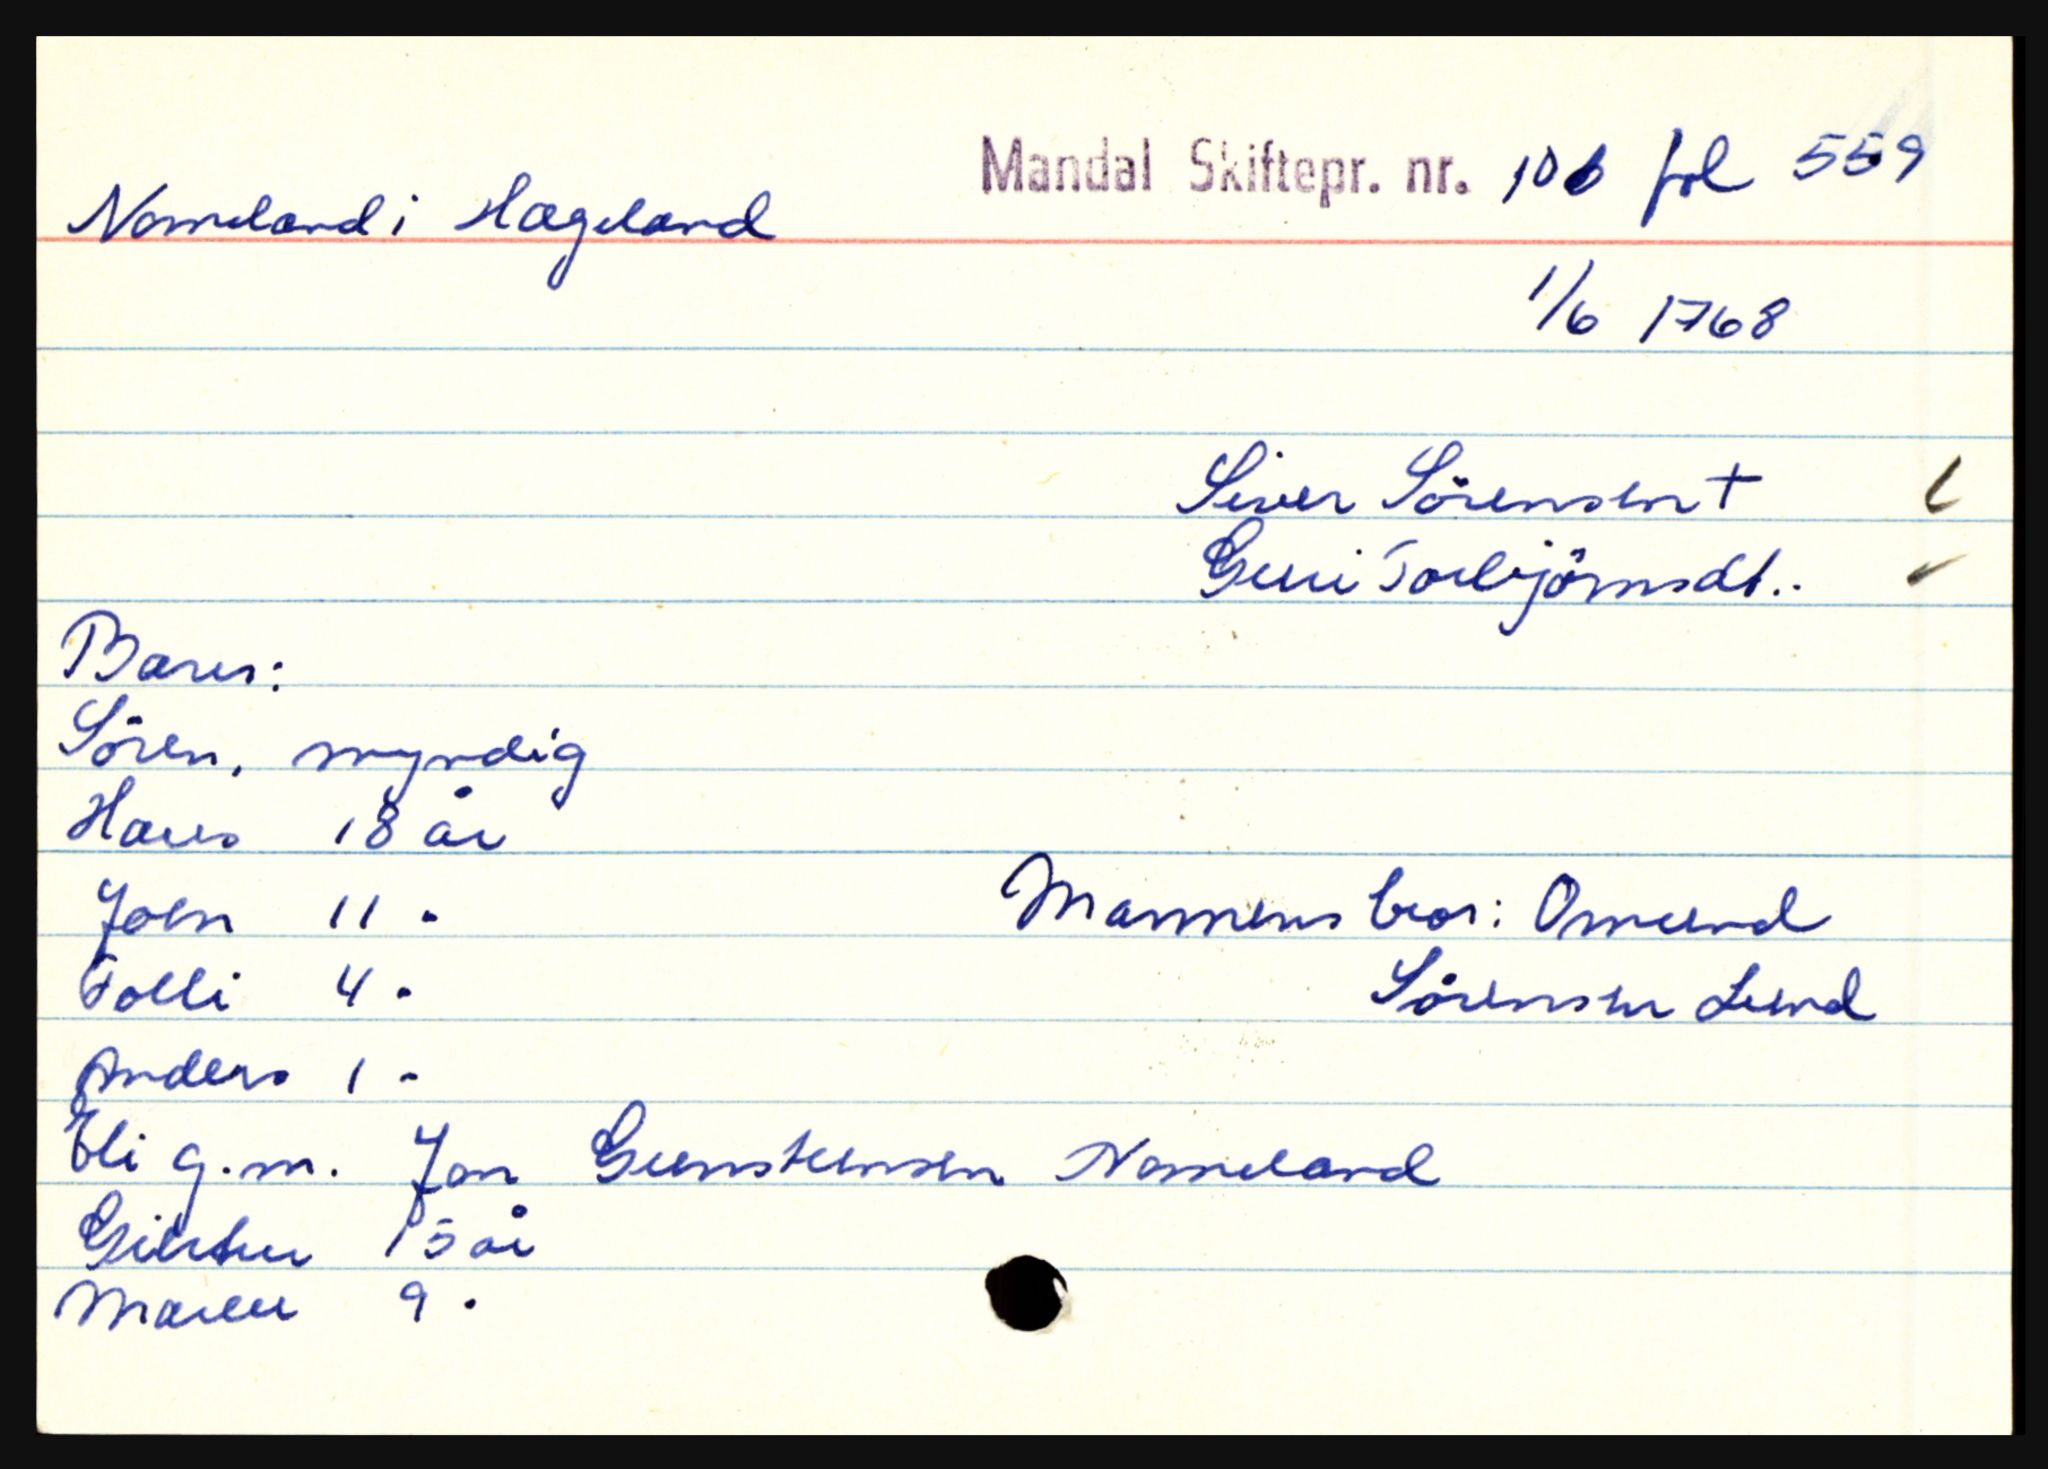 Mandal Skiftepr. nr. 106 fol 559
Nomeland i Hægeland
1/6 1768
Siver Sörensen +
Guri Torbjörnsdt..
Barn:
Sören, myndig
Hans 18 år
John 11 -
Tolli 4 -
Anders 1 -
Mannens bror: Omund
Sørensen Lund
Eli g.m. Jon Gunstensen Nomeland
15 år
Maren 9 -